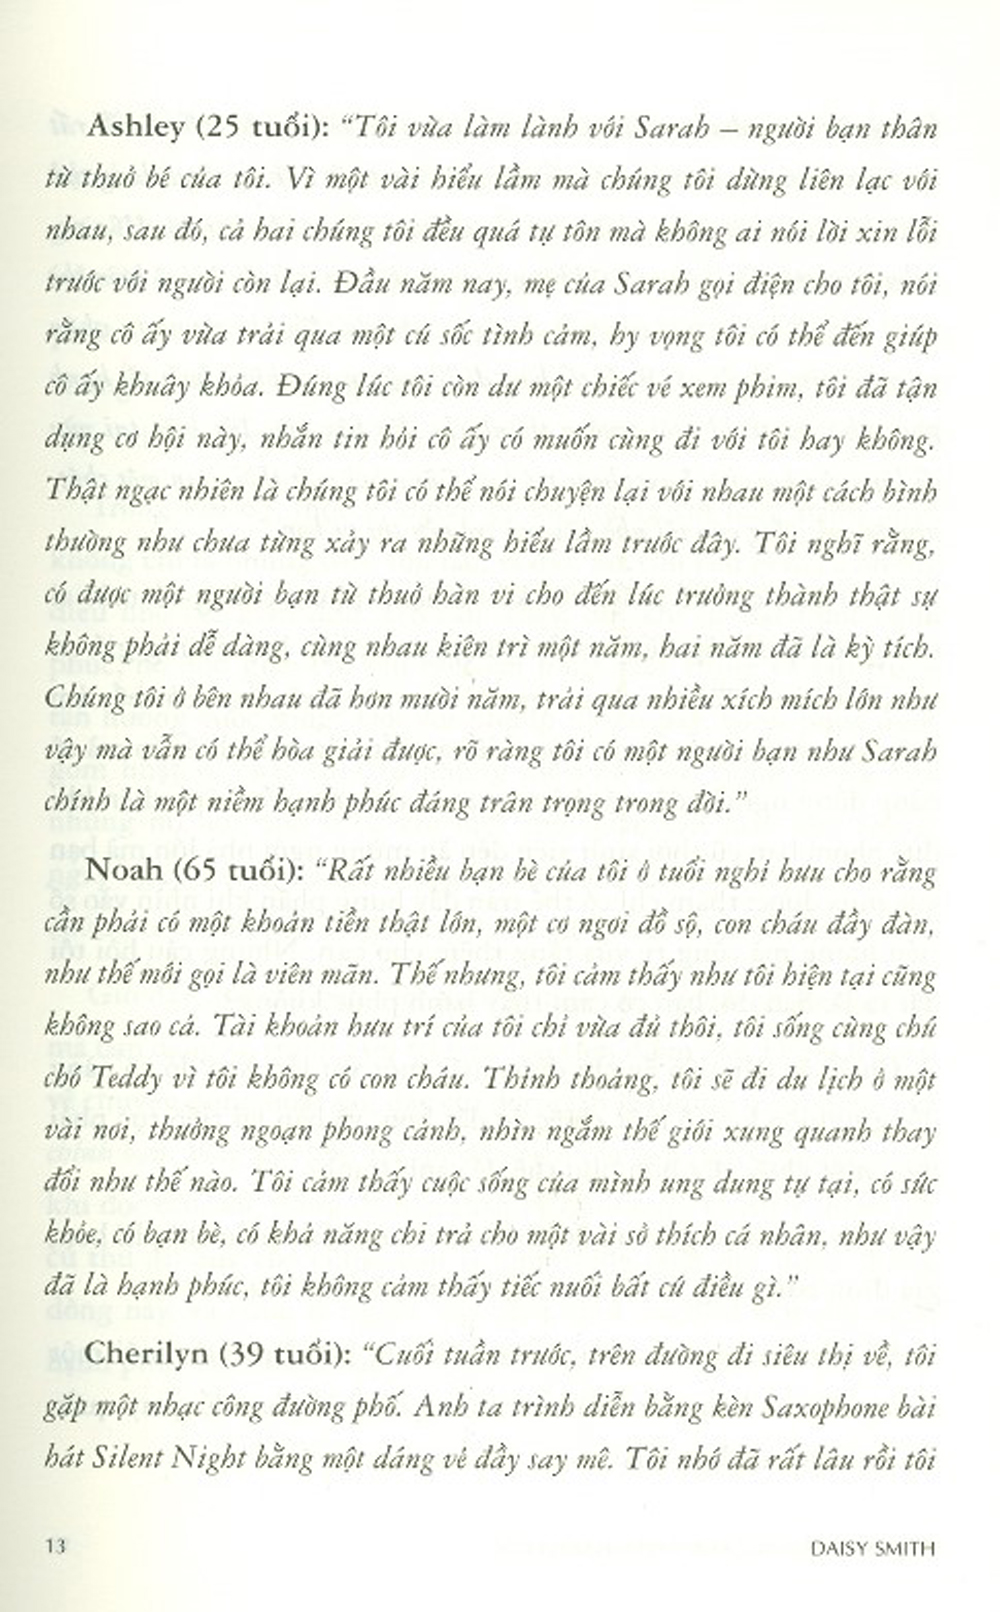 Ashley (25 tuổi): “Tôi vừa làm lành với Sarah – người bạn thân
từ thuở bé của tôi. Vì một vài hiểu lầm mà chúng tôi dừng liên lạc với
nhau, sau đó, cả hai chúng tôi đều quá tự tôn mà không ai nói lời xin lỗi
trước với người còn lại. Đầu năm nay, mẹ của Sarah gọi điện cho tôi, nói
rằng cô ấy vừa trải qua một cú sốc tình cảm, hy vọng tôi có thể đến giúp
cô ấy khuây khỏa. Đúng lúc tôi còn dư một chiếc vé xem phim, tôi đã tận
dụng cơ hội này, nhắn tin hỏi cô ấy có muốn cùng đi với tôi hay không.
Thật ngạc nhiên là chúng tôi có thể nói chuyện lại với nhau một cách bình
thường như chưa từng xảy ra những hiểu lầm trước đây. Tôi nghĩ rằng,
có được một người bạn từ thuở hàn vi cho đến lúc trưởng thành thật sự
không phải dễ dàng, cùng nhau kiên trì một năm, hai năm đã là kỳ tích.
Chúng tôi ở bên nhau đã hơn mười năm, trải qua nhiều xích mích lớn như
vậy mà vẫn có thể hòa giải được, rõ ràng tôi có một người bạn như Sarah
chính là một niềm hạnh phúc đáng trân trọng trong đời.”
Noah (65 tuổi): “Rất nhiều bạn bè của tôi ở tuổi nghỉ hưu cho rằng
cần phải có một khoản tiền thật lớn, một cơ ngơi đồ sộ, con cháu đầy đàn,
như thế mới gọi là viên mãn. Thế nhưng, tôi cảm thấy như tôi hiện tại cũng
không sao cả. Tài khoản hưu trí của tôi chỉ vừa đủ thôi, tôi sống cùng chú
chó Teddy vì tôi không có con cháu. Thỉnh thoảng, tôi sẽ đi du lịch ở một
vài nơi, thưởng ngoạn phong cảnh, nhìn ngắm thế giới xung quanh thay
đổi như thế nào. Tôi cảm thấy cuộc sống của mình ung dung tự tại, có sức
khỏe, có bạn bè, có khả năng chi trả cho một vài sở thích cá nhân, như vậy
đã là hạnh phúc, tôi không cảm thấy tiếc nuối bất cứ điều gì.”
Cherilyn (39 tuổi): “Cuối tuần trước, trên đường đi siêu thị về, tôi
gặp một nhạc công đường phố. Anh ta trình diễn bằng kèn Saxophone bài
hát Silent Night bằng một dáng vẻ đầy say mê. Tôi nhớ đã rất lâu rồi tôi
13 DAISY SMITH